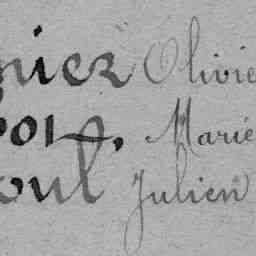 niez Olivie
Marie
oul Julien